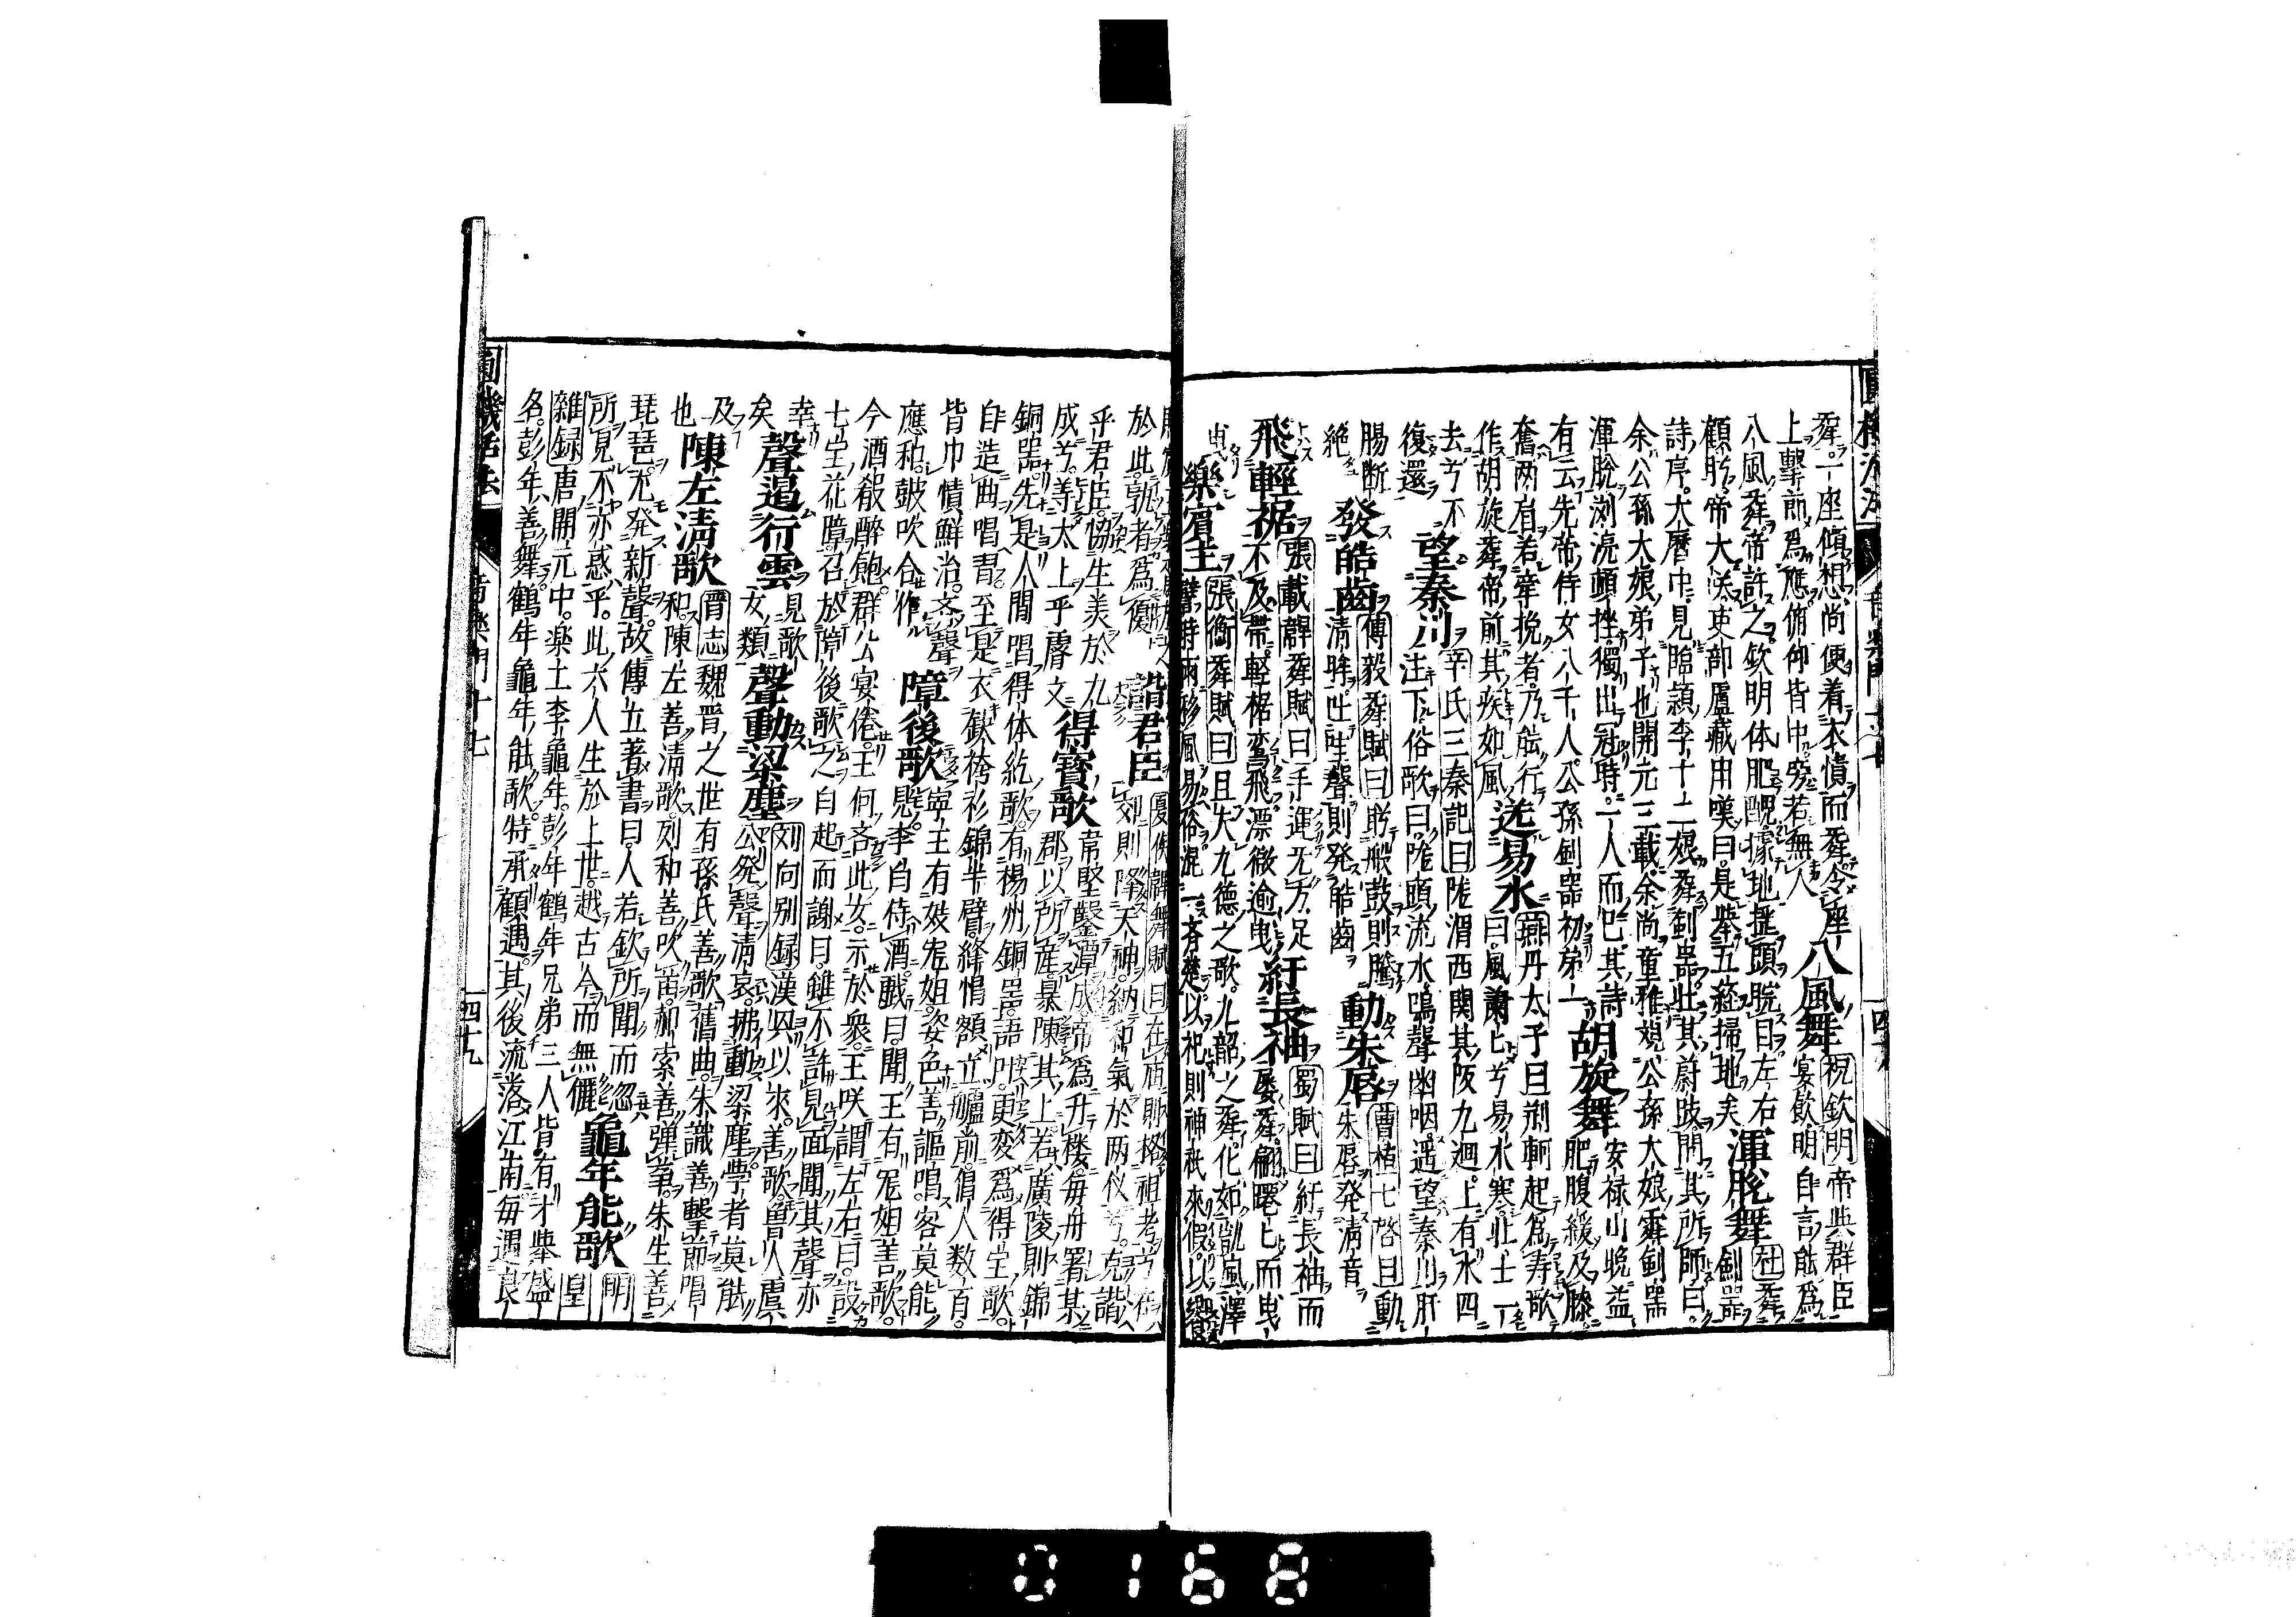 舞一座傾想尚便着衣幘而舞令座
八風舞
祝欽明帝與群臣
上擊節爲應俯仰皆中旁若無人
宴飲明自言能爲
八風舞帝許之欽明体肥醜據地揺頭睆目左右
顧眄帝大笑吏部盧藏用嘆曰是挙五経掃地矣
渾脫舞
杜舞
劍器
詩序大曆中見臨潁李十二娘舞剣器壮其蔚跂問其所師曰
余公孫大娘弟子也開元三載余尚童稚観公孫大娘舞剣器
渾脫瀏漓頓挫獨出冠時一人而已其詩
有云先帝侍女八千人公孫劍器初第一
胡旋舞
安禄山晩益
肥腹緩及膝
奮両肩若牽挽者乃能行
作胡旋舞帝前其疾如風
送易水
燕丹太子曰荊軻起爲寿歌
曰風蕭〻兮易水寒壮士一
去兮不
復還
望秦川
辛氏三秦記曰隴渭西関其阪九廻上有水四
注下俗歌曰隴頭流水鳴聲幽咽遥望秦川肝
腸断
絶
發皓齒
傅毅舞賦曰眄般鼓則騰
清眸吐哇聲則発皓齒
動朱唇
曹植七啓曰動
朱唇発清音
飛輕裾
張載鞞舞賦曰手運无方足
不及帯軽裾鸞飛漂微逾曳
紆長袖
蜀賦曰紆長袖而
屡舞翩躚〻而曳
曳
樂賓主
張衡舞賦曰且夫九德之歌九韶之舞化如凱風澤
譬時雨移風易俗混一斉楚以祀則神祇來假以饗
於此孰者爲優
諧君臣
則降天神納和氣於両仪兮克諧
乎君臣協生美於九
成兮等太上乎膺文
得寳歌
韋堅鑿潭成帝爲升楼毎舟署某
郡以所産暴陳其上若廣陵則錦
銅器先是人間唱得体紇歌有楊州銅器語
自造曲唱習至是衣欽袴衫錦半臂絳帽額立艫前倡人数百
皆巾幘鮮治斉聲
應和鼓吹合作
障後歌
寧王有妓寵姐姿色善謳唱客莫能
見李白侍酒戲曰聞王有寵姐善歌
今酒殽醉飽群公宴倦王何吝此女示於衆王咲謂左右曰設
七宝花障召於障後歌之白起而謝曰雖不許見面聞其聲亦
幸
矣
聲遏行雲
見歌
女類
聲動梁塵
刘向别録漢興以來善歌魯人虞
公発聲清哀拂動梁塵学者莫能
及
也
陳左清歌
晋志魏晋之世有孫氏善歌舊曲朱識善擊節唱
和陳左善清歌列和善吹笛郝索善弾筝朱生善
琵琶尤発新聲故傳玄著書曰人若欽所聞而忽
所見不亦惑乎此六人生於上世越古今而無儷
龜年能歌
明
皇
雜録唐開元中楽工李龜年彭年鶴年兄弟三人皆有才挙盛
名彭年善舞鶴年龜年能歌特承顧遇其後流落江南毎遇良
圓機活法
音樂門十七
四十九
0168